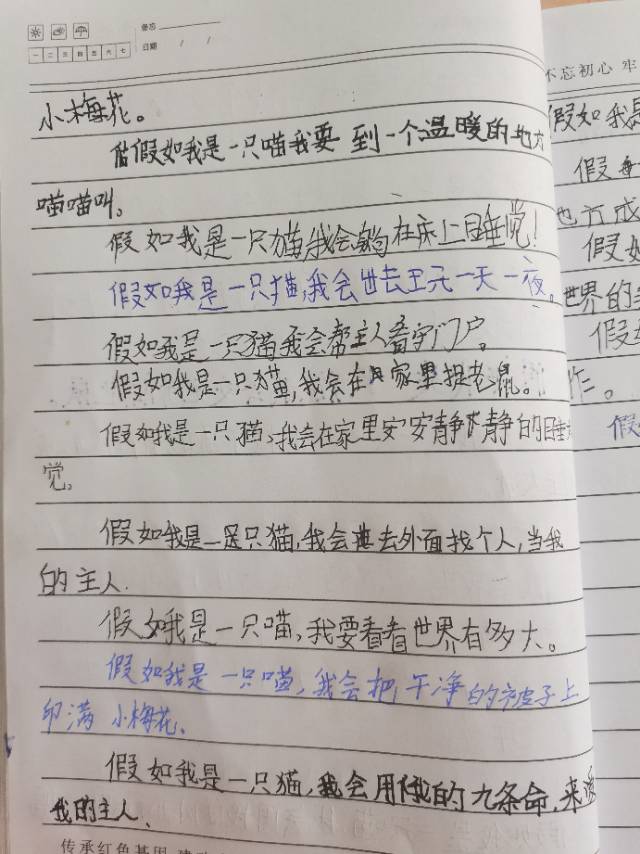 备忘
日期 / /
一 二 三 四 五 六 七
小梅花。
假如我是一只喵我要 到一个温暖的地方
喵喵叫。
假如我是一只猫,我会躺在床上睡觉!
假如我是一只猫,我会出去玩一天一夜。
假如我是一只猫我会帮主人看守门户。
假如我是一只猫,我会在家里捉老鼠。
假如我是一只猫,我会在家里安安静静的睡
觉。
假如我是一只猫,我会去外面找个人,当我
的主人.
假如我是一只喵,我要看看世界有多大。
假如我是一只喵,我会把干净的被子上
印满小梅花.
假如我是一只猫,我会用我的九条命,来
我的主人.
传承红色基因
不忘初心 牢
假如我是
假
地方成
假如
世界的
假
作。
假